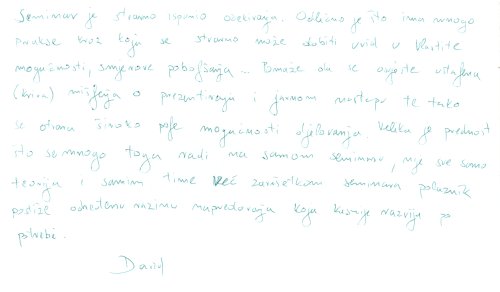 Seminar je stvarno ispunio očekivanja. Odlično je što ima mnogo
prakse kroz koju se stvarno može dobiti uvid u vlastite
mogućnosti, smjerove poboljšanja... Pomaže da se osvijeste
(kriva) mišljenja o prezentiranju i javnom nastupu te tako
se otvara široko polje mogućnosti djelovanja. Velika je prednost
što se mnogo toga radi na samom seminaru, nije sve samo
teorija i samim time već završetkom seminara polaznik
postiže određenu razinu napredovanja koju kasnije razvija po
potrebi.
David